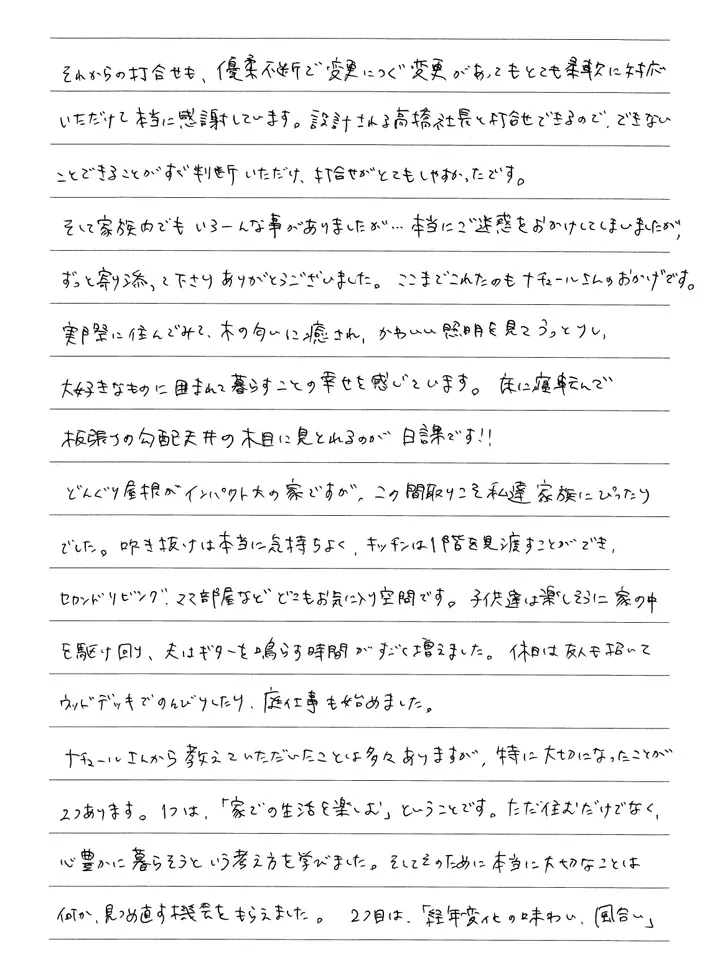 それからの打合せも、優柔不断で変更につぐ変更があってもとても柔軟に対応
いただけて本当に感謝しています。設計される高橋社長と打合せできるので、できない
ことできることがすぐ判断いただけ、打合せがとてもしやすかったです。
そして家族内でもいろーんな事がありましたが…本当にご迷惑をおかけしてしまいましたが、
ずっと寄り添って下さりありがとうございました。ここまでこれたのもナチュールさんのおかげです。
実際に住んでみて、木の匂いに癒され、かわいい照明を見てうっとりし、
大好きなものに囲まれて暮らすことの幸せを感じています。床に寝転んで
板張りの勾配天井の木目に見とれるのが日課です!!
どんぐり屋根がインパクト大の家ですが、この間取りこそ私達家族にぴったり
でした。吹き抜けは本当に気持ちよく、キッチンは1階を見渡すことができ、
セカンドリビング、ママ部屋などどこもお気に入り空間です。子供達は楽しそうに家の中
を駆け回り、夫はギターを鳴らす時間がすごく増えました。休日は友人を招いて
ウッドデッキでのんびりしたり、庭仕事も始めました。
ナチュールさんから教えていただいたことは多々ありますが、特に大切になったことが
2つあります。1つは、「家での生活を楽しむ」ということです。ただ住むだけでなく、
心豊かに暮らそうという考え方を学びました。そしてそのために本当に大切なことは
何か、見つめ直す機会をもらえました。2つ目は、「経年変化の味わい、風合い」